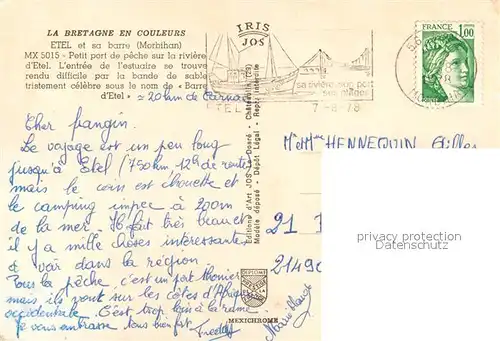 LA BRETAGNE EN COULEURS
ETEL et sa barre (Morbihan)
MX 5015 - Petit port de pêche sur la rivière
d'Etel. L'entrée de l'estuaire se trouve
rendu difficile par la bande de sable
tristement célèbre sous le nom de "Barre
d'Etel"
≈ 20 km de Carnac
IRIS
JOS
sa rivière son port
ses plages
ETEL
7-8-78
FRANCE
1,00
Cher frangin.
Le voyage est un peu long
jusqu'à Etel (750km 12h de route)
mais le coin est chouette et
le camping impec à 200m
de la mer. Il fait très beau et
il y a mille choses intéressantes
à voir dans la région.
Pour la pêche, c'est un port thonier
mais ils vont sur les côtes d'Afrique
occidentale. C'est trop loin à la rame.
Je vous embrasse tous bien fort
Freddy
Editions d'Art JOS Le Doaré - Châteaulin (29)
Modèle déposé - Dépôt Légal - Repr. interdite
MEXICHROME
M. et Mme HENNEQUIN Gilles
21
2149
privacy protection
Datenschutz